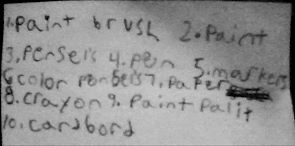 1. paint brush 2. Paint
3. Pensels 4. Pen 5. markers
6 color Pensels 7. Paper
8. crayon 9. Paint Palit
10. cardbord